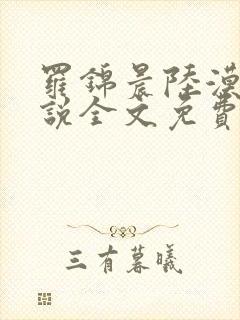 羅錦晨陸漠
說全文免費
三有暮曦